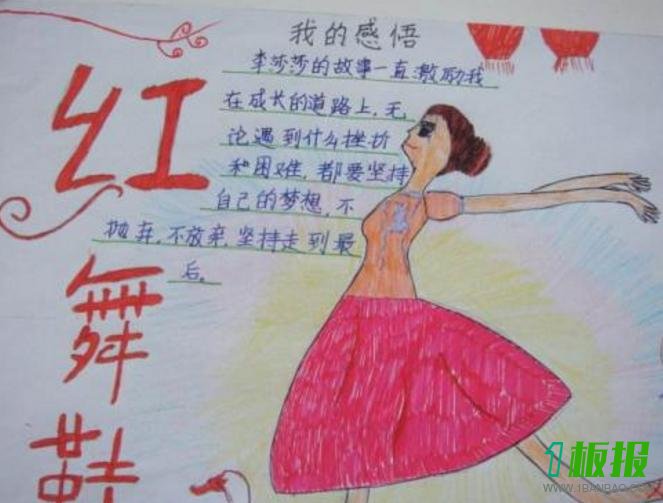 我的感悟
李莎莎的故事一直激励我
在成长的道路上,无
论遇到什么挫折
和困难,都要坚持
自己的梦想,不
抛弃,不放弃,坚持走到最
后。
红
舞
鞋
1板报
WWW.1BANBAO.COM